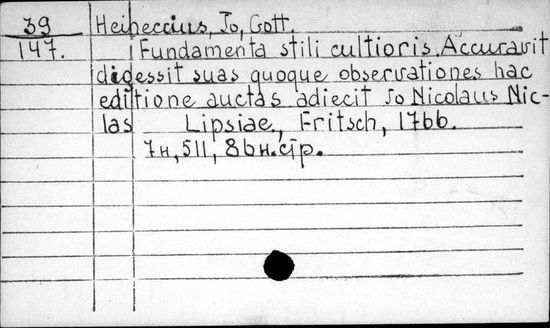 39 Heineccius, Jo, Gott.
147. Fundamenta stili cultioris. Accuravit
digessit suas quoque observationes hac
editione auctas adiecit Jo Nicolaus Nic-
las Lipsiae, Fritsch, 1766.
7н, 511, 86н. стр.